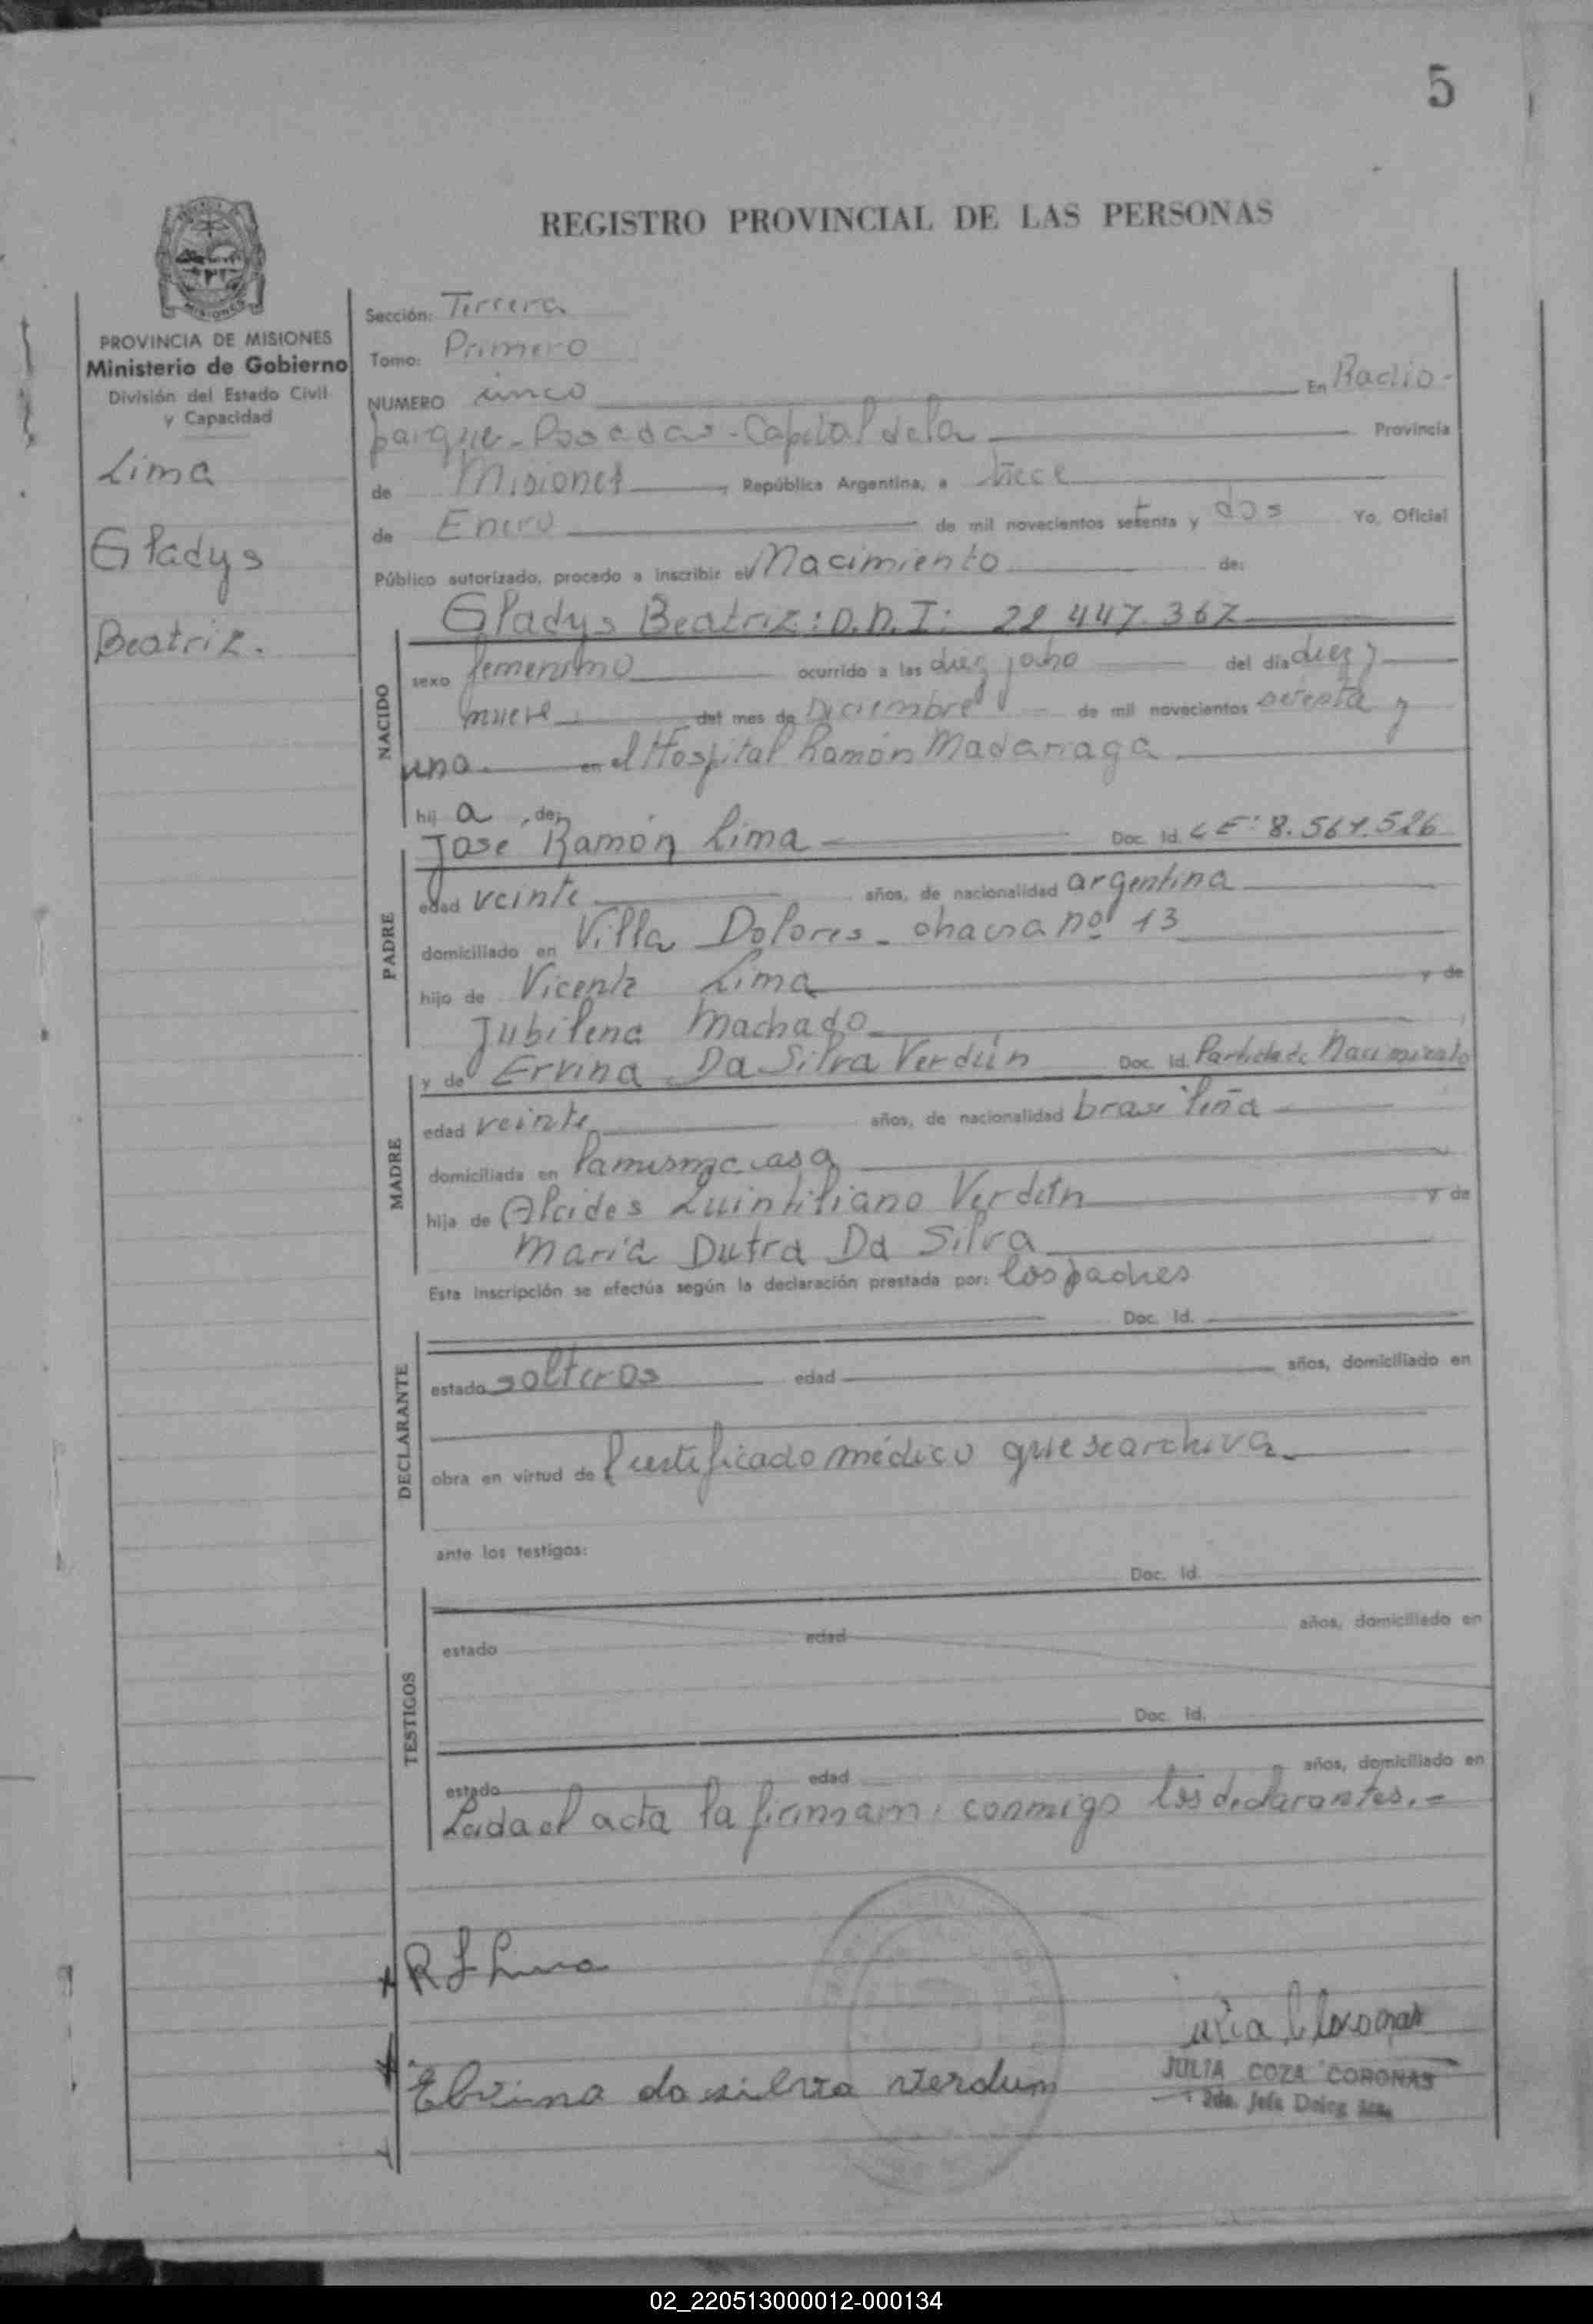 5
REGISTRO PROVINCIAL DE LAS PERSONAS
MISIONES
PROVINCIA DE MISIONES
Ministerio de Gobierno
División del Estado Civil
y Capacidad
Lima
Gladys
Beatriz.
Sección: Tercera
Tomo: Primero
NUMERO cinco En Radio-
parque - Posadas - Capital de la Provincia
de Misiones, República Argentina, a trece
de Enero de mil novecientos setenta y dos Yo, Oficial
Público autorizado, procedo a inscribir el Nacimiento de:
Gladys Beatriz: D.N.I: 22 447.367
NACIDO
sexo femenino ocurrido a las diez y ocho del día diez y
nueve del mes de Diciembre de mil novecientos setenta y
uno. en el Hospital Ramón Madariaga
hij a , de
José Ramón Lima Doc. Id. LE: 8.561.526
PADRE
edad veinte años, de nacionalidad argentina
domiciliado en Villa Dolores - chacra nº 13
hijo de Vicente Lima y de
Jubilena Machado
y de Ervina Da Silva Verdún Doc. Id. Partida de Nacimiento
MADRE
edad veinte años, de nacionalidad brasileña
domiciliada en la misma casa
hija de Alcides Quintiliano Verdún y de
Maria Dutra Da Silva
Esta inscripción se efectúa según la declaración prestada por: los padres
Doc. Id.
DECLARANTE
estado solteros edad años, domiciliado en
obra en virtud de certificado médico que se archiva
ante los testigos:
Doc. Id.
TESTIGOS
estado edad años, domiciliado en
Doc. Id.
estado edad años, domiciliado en
Leida el acta la firman conmigo los declarantes.-
R J Lima
Elvina da silva verdum
JULIA COZA CORONAS
2da. Jefa
02_220513000012-000134